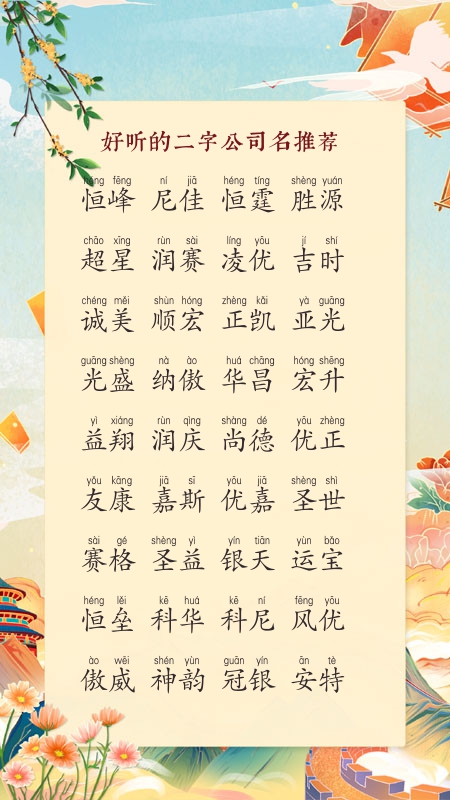 好听的二字公司名推荐
héng fēng ní jiā héng tíng shèng yuán
恒峰 尼佳 恒霆 胜源
chāo xīng rùn sài líng yōu jí shí
超星 润赛 凌优 吉时
chéng měi shùn hóng zhèng kǎi yà guāng
诚美 顺宏 正凯 亚光
guāng shèng nà ào huá chāng hóng shēng
光盛 纳傲 华昌 宏升
yì xiáng rùn qìng shàng dé yōu zhèng
益翔 润庆 尚德 优正
yǒu kāng jiā sī yōu jiā shèng shì
友康 嘉斯 优嘉 圣世
sài gé shèng yì yín tiān yùn bǎo
赛格 圣益 银天 运宝
héng lěi kē huá kē ní fēng yōu
恒垒 科华 科尼 风优
ào wēi shén yùn guān yín ān tè
傲威 神韵 冠银 安特